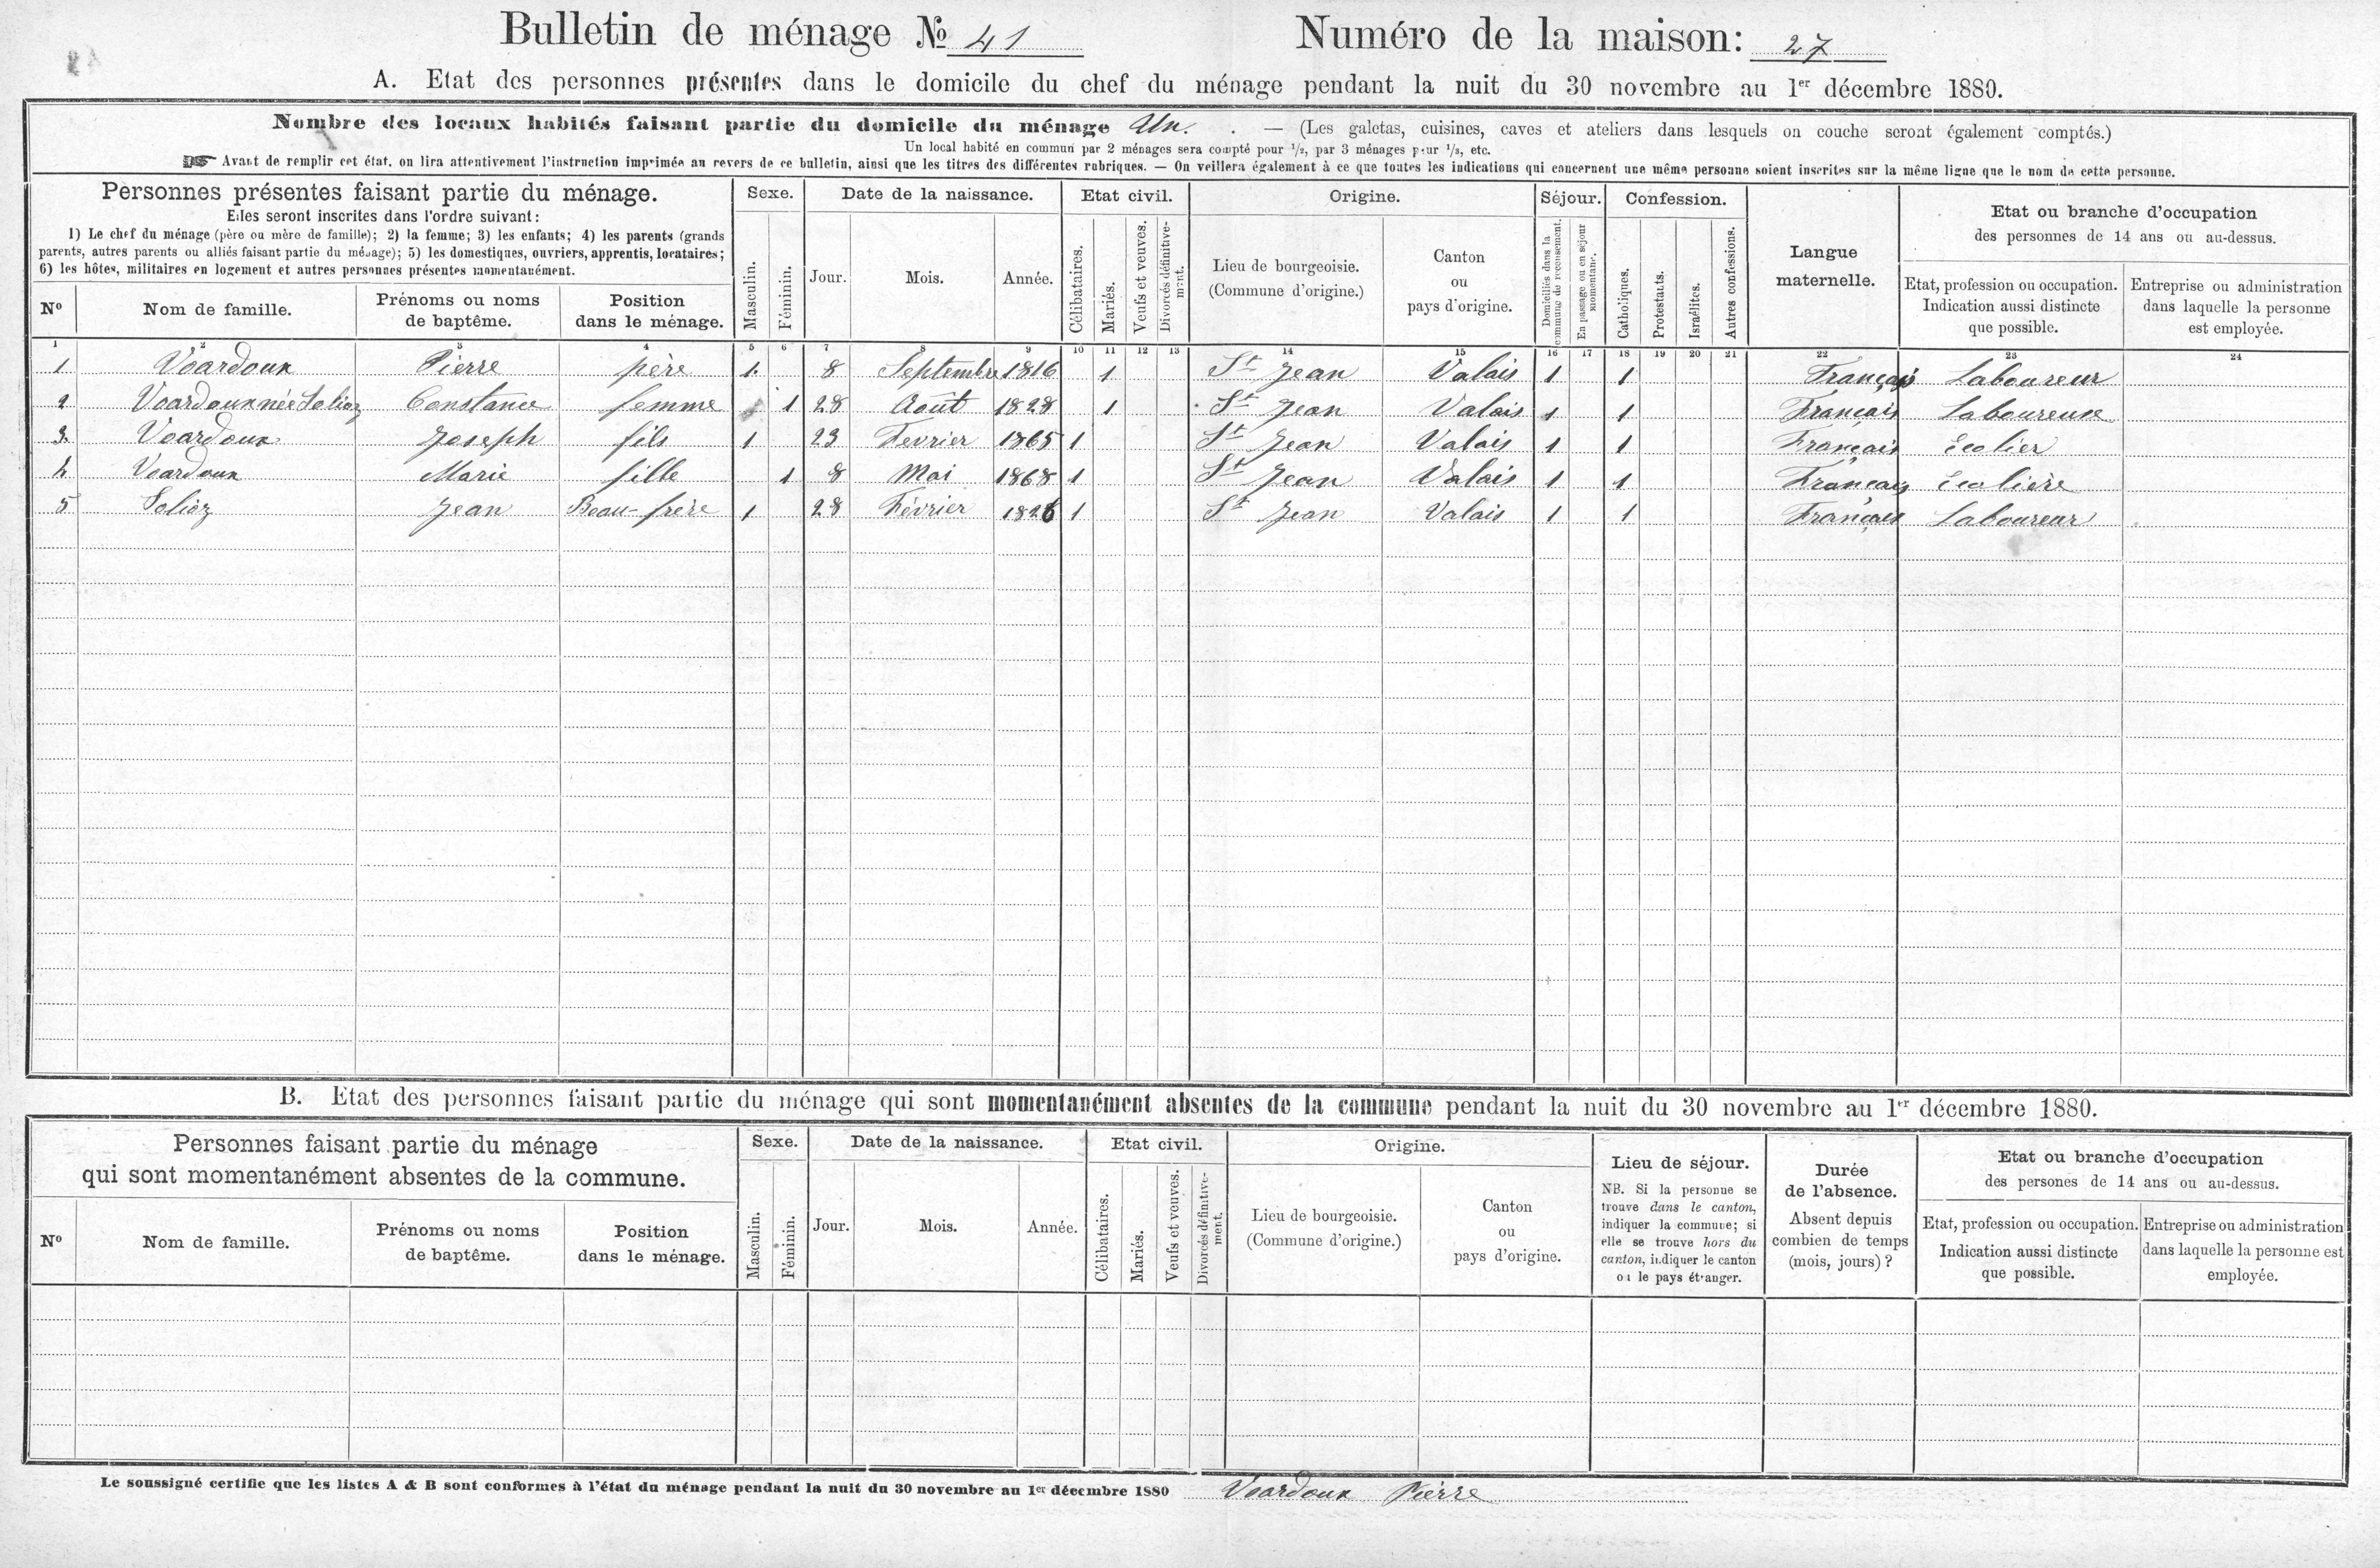 Bulletin de ménage № 41 Numéro de la maison: 27
A. Etat des personnes présentes dans le domicile du chef du ménage pendant la nuit du 30 novembre au 1er décembre 1880.
Nombre des locaux habités faisant partie du domicile du ménage Un. . — (Les galetas, cuisines, caves et ateliers dans lesquels on couche seront également comptés.)
Un local habité en commun par 2 ménages sera compté pour 1/2, par 3 ménages pour 1/3, etc.
☞ Avant de remplir cet état, on lira attentivement l'instruction imprimée au revers de ce bulletin, ainsi que les titres des différentes rubriques. — On veillera également à ce que toutes les indications qui concernent une même personne soient inscrites sur la même ligne que le nom de cette personne.
Personnes présentes faisant partie du ménage.
Elles seront inscrites dans l'ordre suivant:
1) Le chef du ménage (père ou mère de famille); 2) la femme; 3) les enfants; 4) les parents (grands
parents, autres parents ou alliés faisant partie du ménage); 5) les domestiques, ouvriers, apprentis, locataires;
6) les hôtes, militaires en logement et autres personnes présentes momentanément.
Nº Nom de famille. Prénoms ou noms de baptême. Position dans le ménage.
Sexe. Masculin. Féminin.
Date de la naissance. Jour. Mois. Année.
Etat civil. Célibataires. Mariés. Veufs et veuves. Divorcés définitivement.
Origine. Lieu de bourgeoisie. (Commune d'origine.) Canton ou pays d'origine.
Séjour. Domiciliés dans la commune de recensement. En passage ou en séjour momentané.
Confession. Catholiques. Protestants. Israélites. Autres confessions.
Langue maternelle.
Etat ou branche d'occupation des personnes de 14 ans ou au-dessus.
Etat, profession ou occupation. Indication aussi distincte que possible.
Entreprise ou administration dans laquelle la personne est employée.
1 2 3 4 5 6 7 8 9 10 11 12 13 14 15 16 17 18 19 20 21 22 23 24
1 Voardoux Pierre père 1. 8 Septembre 1816 1 St Jean Valais 1 1 Français Laboureur
2 Voardoux née Salioz Constance femme 1 28 Août 1828 1 St Jean Valais 1 1 Français Laboureuse
3. Voardoux Joseph fils 1 23 Fevrier 1865 1 St Jean Valais 1 1 Français Ecolier
4 Voardoux Marie fille 1 8 Mai 1868 1 St Jean Valais 1 1 Français Ecolière
5 Salioz Jean Beau-frère 1 28 Février 1826 1 St Jean Valais 1 1 Français Laboureur
B. Etat des personnes faisant partie du ménage qui sont momentanément absentes de la commune pendant la nuit du 30 novembre au 1er décembre 1880.
Personnes faisant partie du ménage
qui sont momentanément absentes de la commune.
Nº Nom de famille. Prénoms ou noms de baptême. Position dans le ménage.
Sexe. Masculin. Féminin.
Date de la naissance. Jour. Mois. Année.
Etat civil. Célibataires. Mariés. Veufs et veuves. Divorcés définitivement.
Origine. Lieu de bourgeoisie. (Commune d'origine.) Canton ou pays d'origine.
Lieu de séjour.
NB. Si la personne se
trouve dans le canton,
indiquer la commune; si
elle se trouve hors du
canton, indiquer le canton
ou le pays étranger.
Durée
de l'absence.
Absent depuis
combien de temps
(mois, jours)?
Etat ou branche d'occupation
des persones de 14 ans ou au-dessus.
Etat, profession ou occupation. Indication aussi distincte que possible.
Entreprise ou administration dans laquelle la personne est employée.
Le soussigné certifie que les listes A & B sont conformes à l'état du ménage pendant la nuit du 30 novembre au 1er décembre 1880 Voardoux Pierre